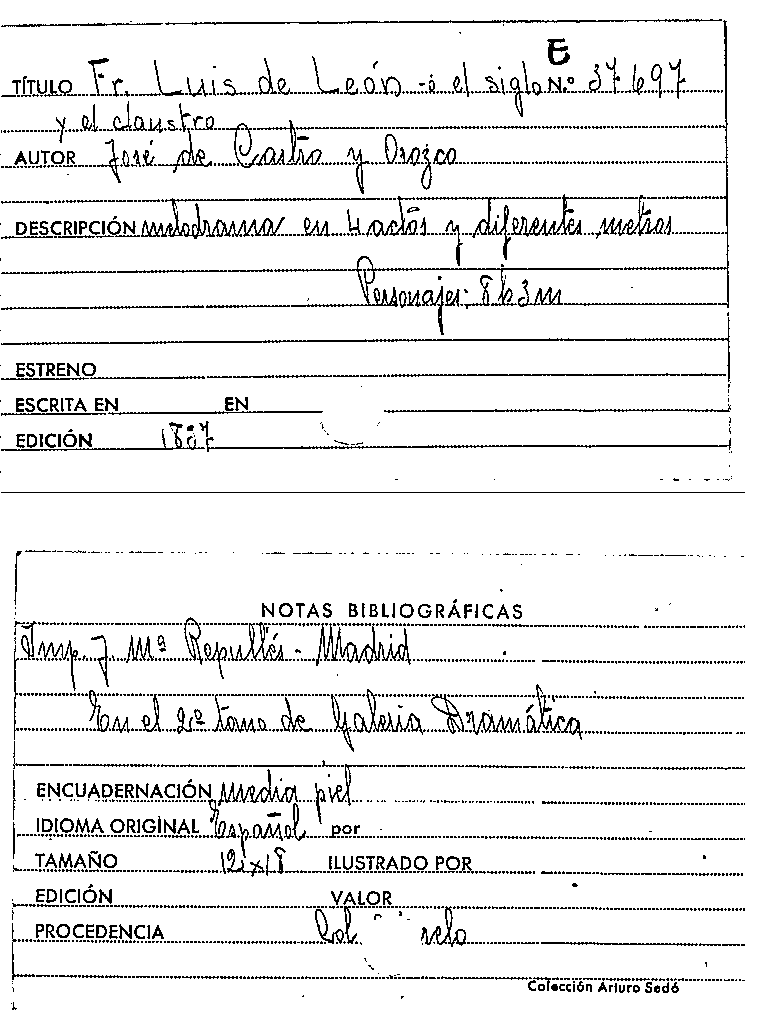 E
TÍTULO Fr. Luis de León - ó el siglo N.º 37697
y el claustro
AUTOR José de Castro y Orozco
DESCRIPCIÓN melodrama en 4 actos y diferentes metros
Personajes: 8 h 3 m
ESTRENO
ESCRITA EN EN
EDICIÓN 1837
NOTAS BIBLIOGRÁFICAS
Imp. J. Mª Repullés - Madrid
En el 2º tomo de Galeria Dramática
ENCUADERNACIÓN Media piel
IDIOMA ORIGINAL Español por
TAMAÑO 12 x 18 ILUSTRADO POR
EDICIÓN VALOR
PROCEDENCIA Col.
Colección Arturo Sedó